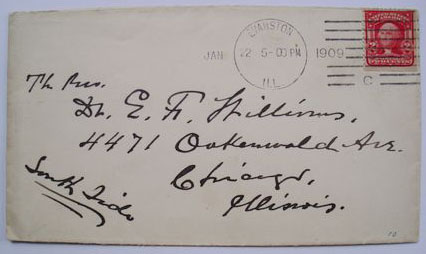 EVANSTON
JAN 22 5-00 PM 1909
ILL.
C
The Rev.
Dr. E. F. Williams,
4471 Oakenwald Ave.
South Side
Chicago,
Illinois.